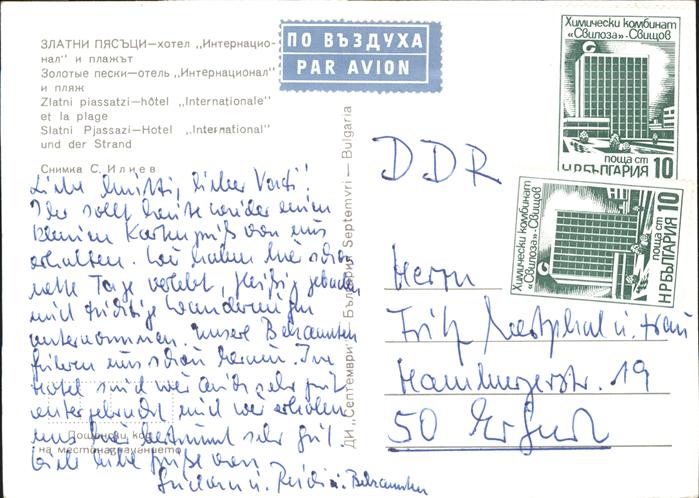 ЗЛАТНИ ПЯСЪЦИ—хотел „Интернацио-
нал" и плажът
Золотые пески—отель „Интернационал"
и пляж
Zlatni piassatzi—hôtel „Internationale"
et la plage
Slatni Pjassazi—Hotel „International"
und der Strand
Снимка С. Илиев
ПО ВЪЗДУХА
PAR AVION
Химически комбинат
«Свилоза»-Свищов
поща ст
НР БЪЛГАРИЯ 10
Химически комбинат
«Свилоза»-Свищов
поща ст
НР БЪЛГАРИЯ 10
ДИ „Септември" България Septemvri — Bulgaria
Liebe Mutti, lieber Vati!
Ihr sollt heute wieder einen
kleinen Kartengruß von uns
erhalten. Wir haben hier schon
nette Tage verlebt, fleißig gebadet
und
Wanderungen
unternommen. Unsere Bekannten
führen uns schon herum. Im
Hotel sind wir auch sehr gut
untergebracht und wir erholen
uns hier bestimmt sehr gut.
Viele liebe Grüße von
u. Heidi u. Bekannten
Пощенски код
на местоназначението
DDR
Herrn
Fritz Westphal u. Frau
Hamburgerstr. 19
50 Erfurt